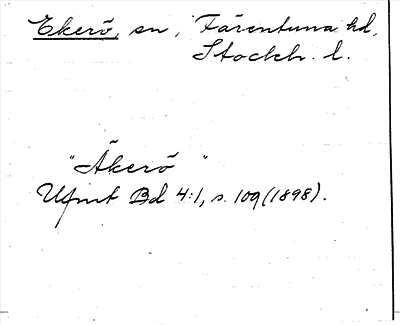 Ekerö, sn, Färentuna hd,
Stockh. l.
"Åkerö"
Ufmt Bd 4:1, s. 109 (1898).